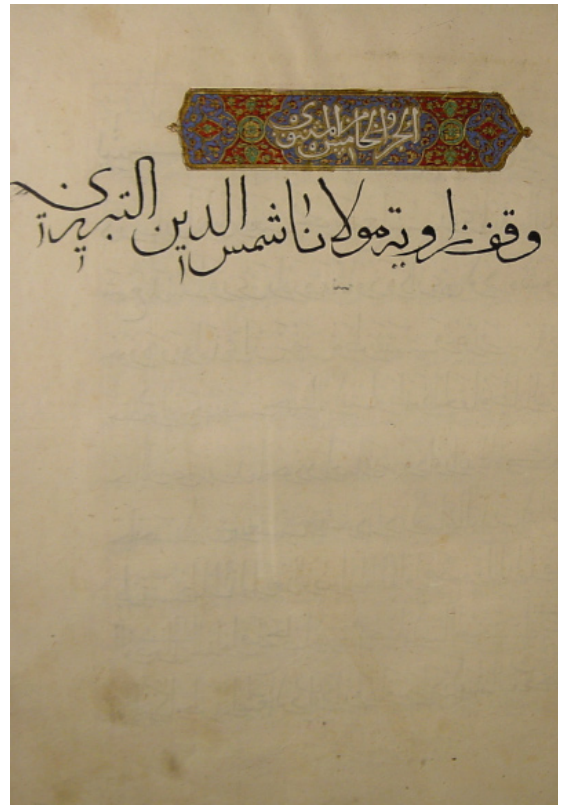 الجزو الخامس
وقف زاوية مولانا شمس الدين التبريزى